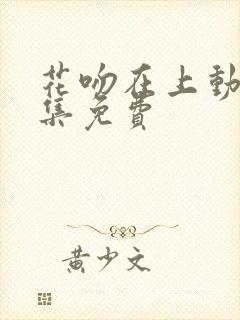 花吻在上動
集免費
黃少文